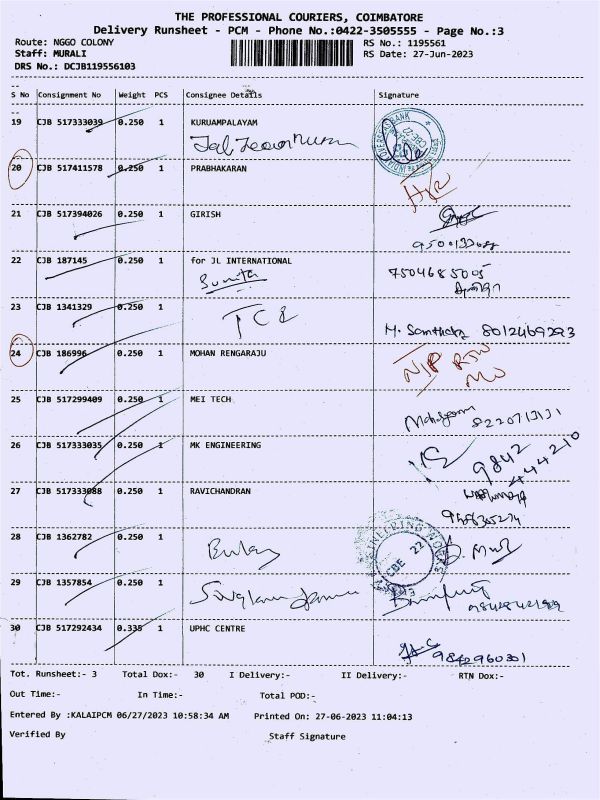 THE PROFESSIONAL COURIERS, COIMBATORE
Delivery Runsheet - PCM - Phone No.:0422-3505555 - Page No.:3
Route: NGGO COLONY RS No.: 1195561
Staff: MURALI RS Date: 27-Jun-2023
DRS No.: DCJB119556103
S No Consignment No Weight PCS Consignee Details Signature
19 CJB 517333039 0.250 1 KURUAMPALAYAM
20 CJB 517411578 0.250 1 PRABHAKARAN
21 CJB 517394026 0.250 1 GIRISH
22 CJB 187145 0.250 1 for JL INTERNATIONAL
Sunita 7504685005
23 CJB 1341329 0.250 1
8012469293
24 CJB 186996 0.250 1 MOHAN RENGARAJU
25 CJB 517299409 0.250 1 MEI TECH
8220713131
26 CJB 517333035 0.250 1 MK ENGINEERING
9842
444210
27 CJB 517333088 0.250 1 RAVICHANDRAN
28 CJB 1362782 0.250 1
29 CJB 1357854 0.250 1
30 CJB 517292434 0.335 1 UPHC CENTRE
9842960301
Tot. Runsheet:- 3 Total Dox:- 30 I Delivery:- II Delivery:- RTN Dox:-
Out Time:- In Time:- Total POD:-
Entered By :KALAIPCM 06/27/2023 10:58:34 AM Printed On: 27-06-2023 11:04:13
Verified By Staff Signature